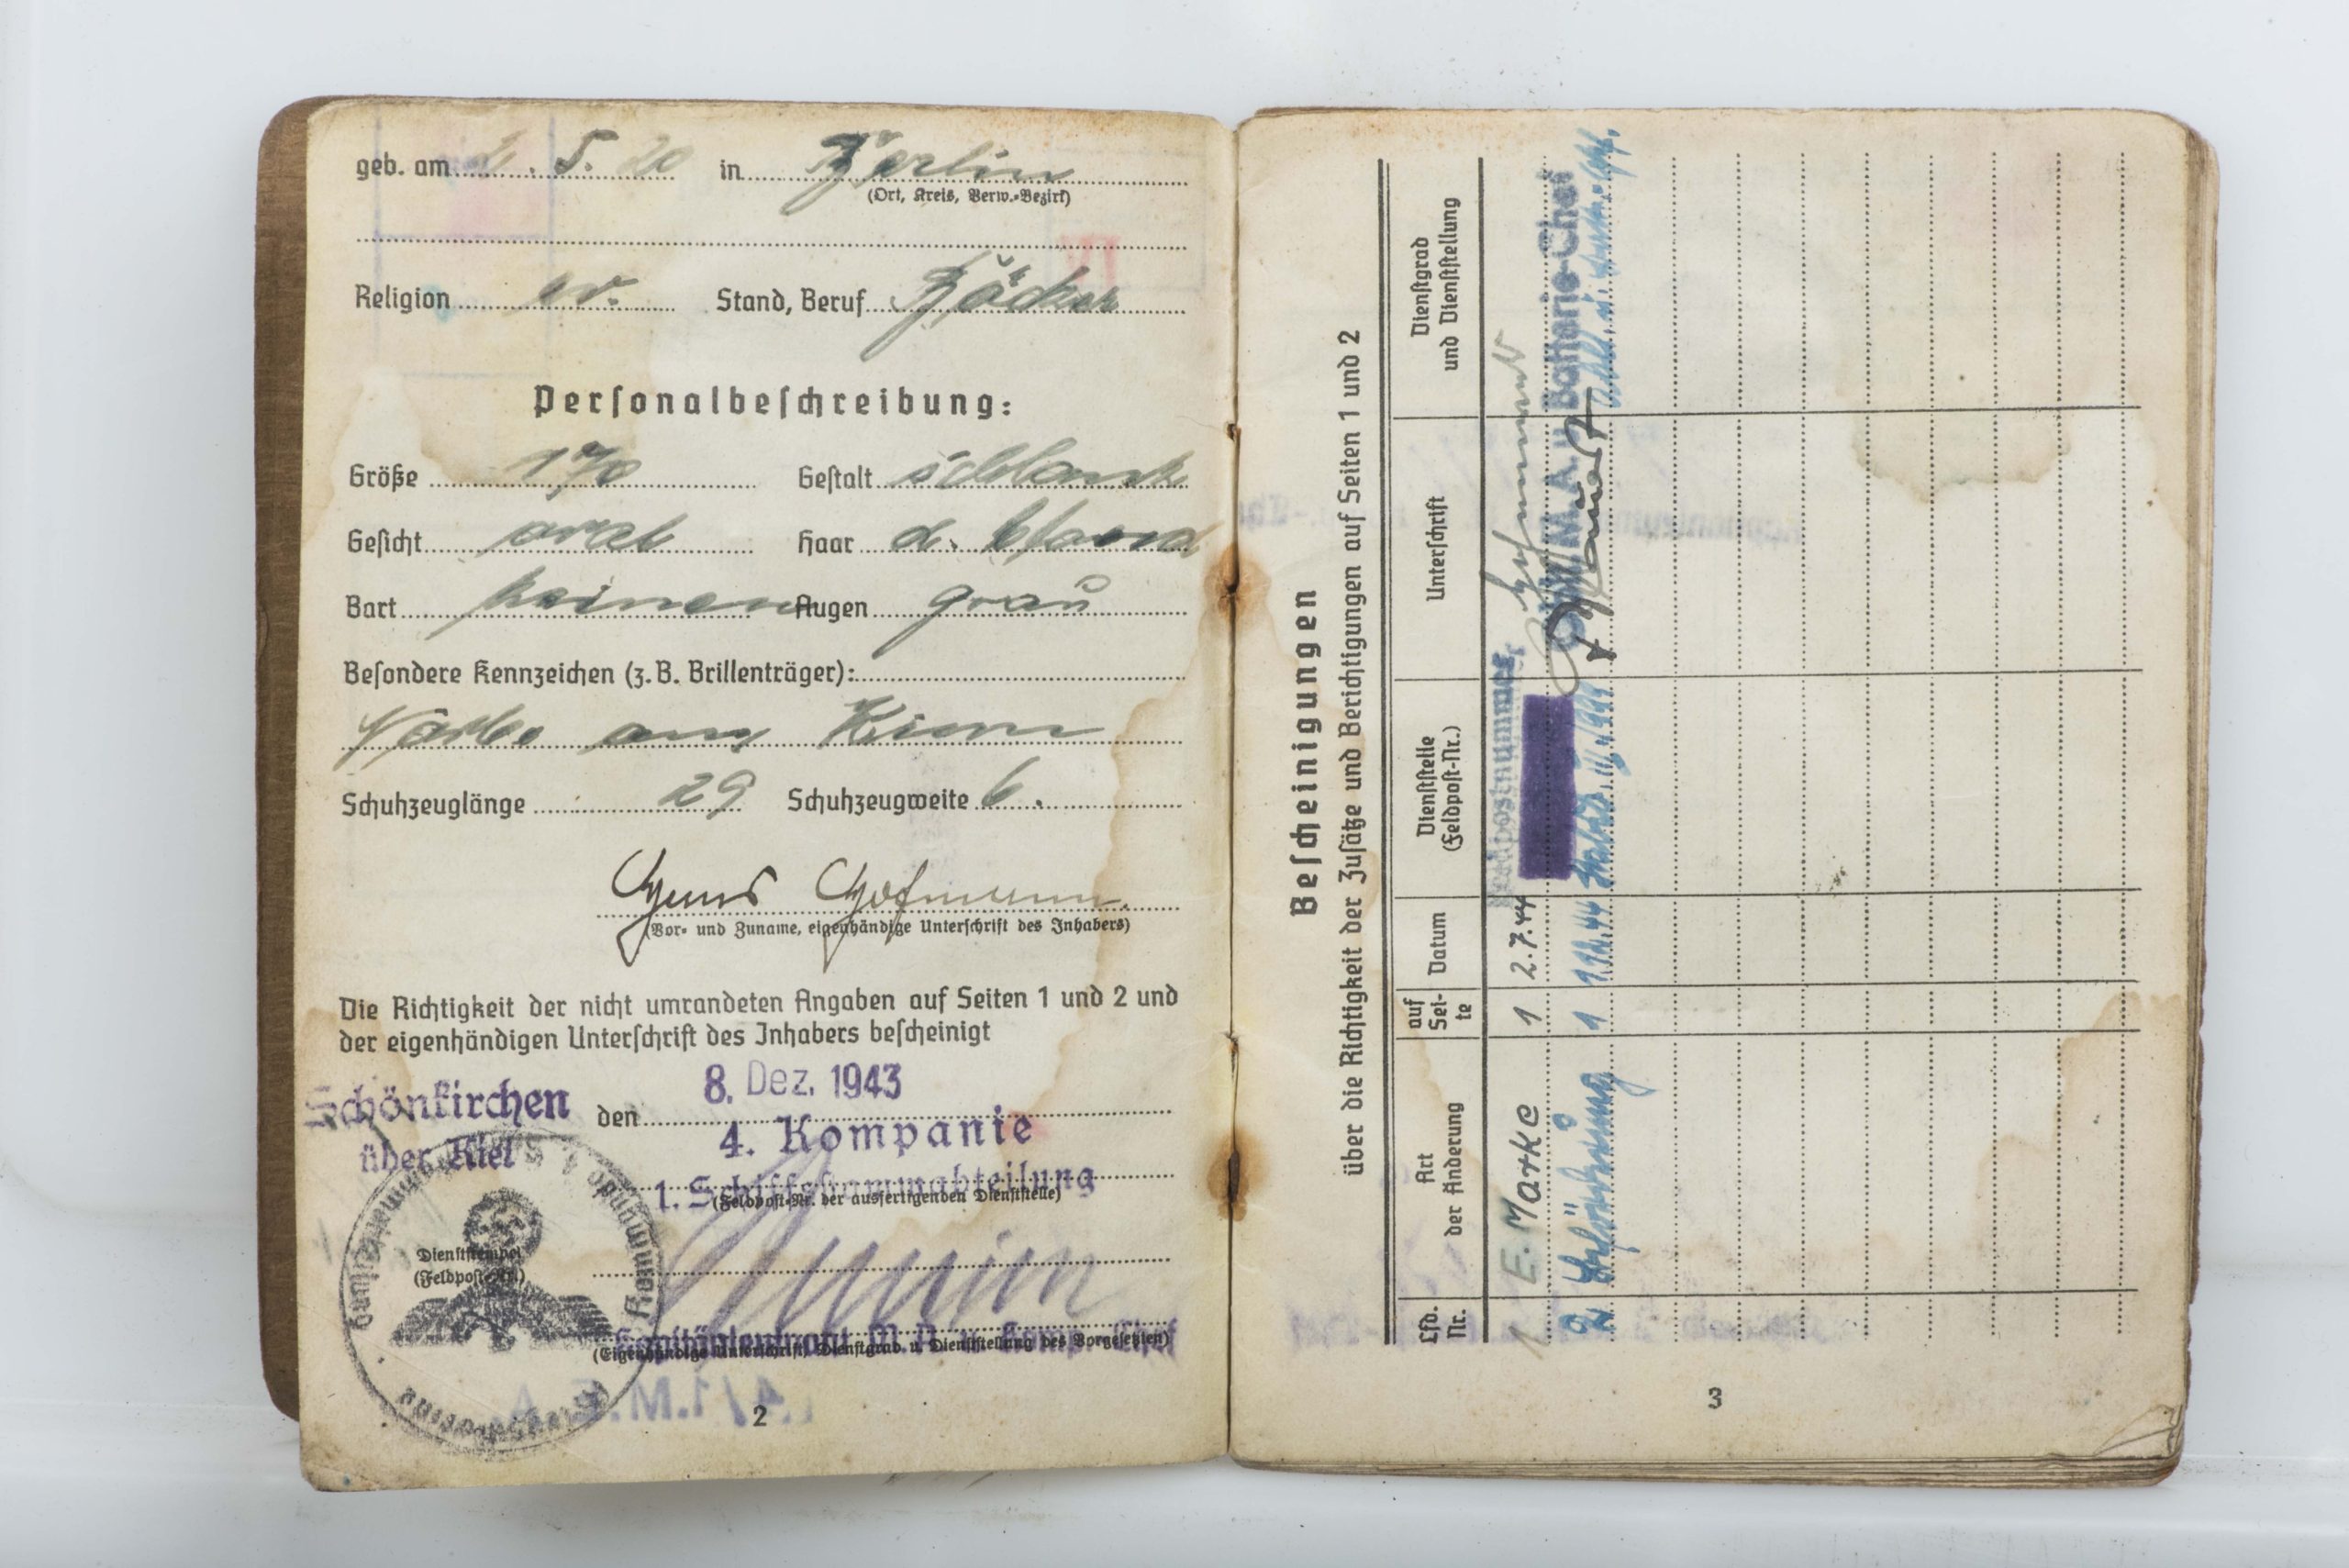 geb. am 2. 5. 20 in Berlin
(Ort, Kreis, Verw.-Bezirk)
Religion ev. Stand, Beruf Bäcker
Personalbeschreibung:
Größe 170 Gestalt schlank
Gesicht oval Haar d. blond
Bart keinen Augen grau
Besondere Kennzeichen (z. B. Brillenträger):
Narbe am Kinn
Schuhzeuglänge 29 Schuhzeugweite 6.
Hans Hofmann.
(Vor- und Zuname, eigenhändige Unterschrift des Inhabers)
Die Richtigkeit der nicht umrandeten Angaben auf Seiten 1 und 2 und
der eigenhändigen Unterschrift des Inhabers bescheinigt
Schönkirchen
über Kiel
den 8. Dez. 1943
4. Kompanie
1. Schiffsstammabteilung
(Feldpost-Nr. der ausfertigenden Dienststelle)
Dienststempel
(Feldpost-Nr.)
Kriegsmarine
Kapitänleutnant M.A. u. Komp.-Chef
(Eigenhändige Unterschrift, Dienstgrad u. Dienststellung des Vorgesetzten)
2
Bescheinigungen
über die Richtigkeit der Zusätze und Berichtigungen auf Seiten 1 und 2
Lfd. Nr.
Art der Änderung
auf Sei-te
Datum
Dienststelle (Feldpost-Nr.)
Unterschrift
Dienstgrad und Dienststellung
1 E. Marke 1 2.7.44 Feldpostnummer
M.A. u. Batterie-Chef
2 1 1.12.44
3